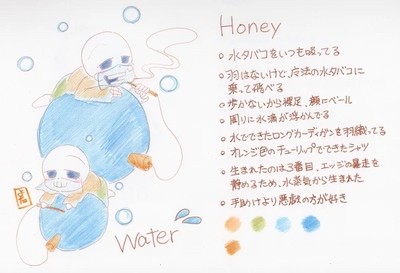 Honey
○ 水タバコをいつも吸ってる
○ 羽はないけど、魔法の水タバコに
乗って飛べる
○ 歩かないから裸足、顔にベール
○ 周りに水滴が浮かんでる
○ 水でできたロングカーディガンを羽織ってる
○ オレンジ色のチューリップでできたシャツ
○ 生まれたのは3番目、エッジの暴走を
静めるため、水蒸気から生まれた
○ 手助けより悪戯の方が好き
Water